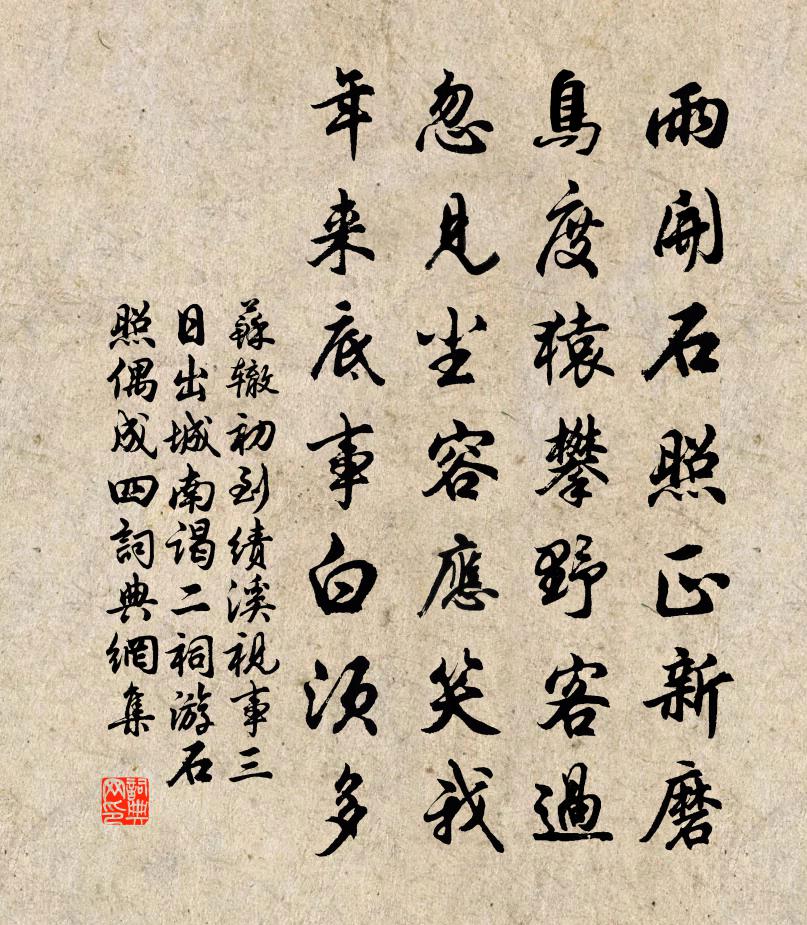 雨開石照正新磨
鳥度猿攀野客過
忽見塵容應笑我
年来底事白須多
蘇辙初到績溪視事三
日出城南謁二祠游石
照偶成四詞典網集
詞典
网印